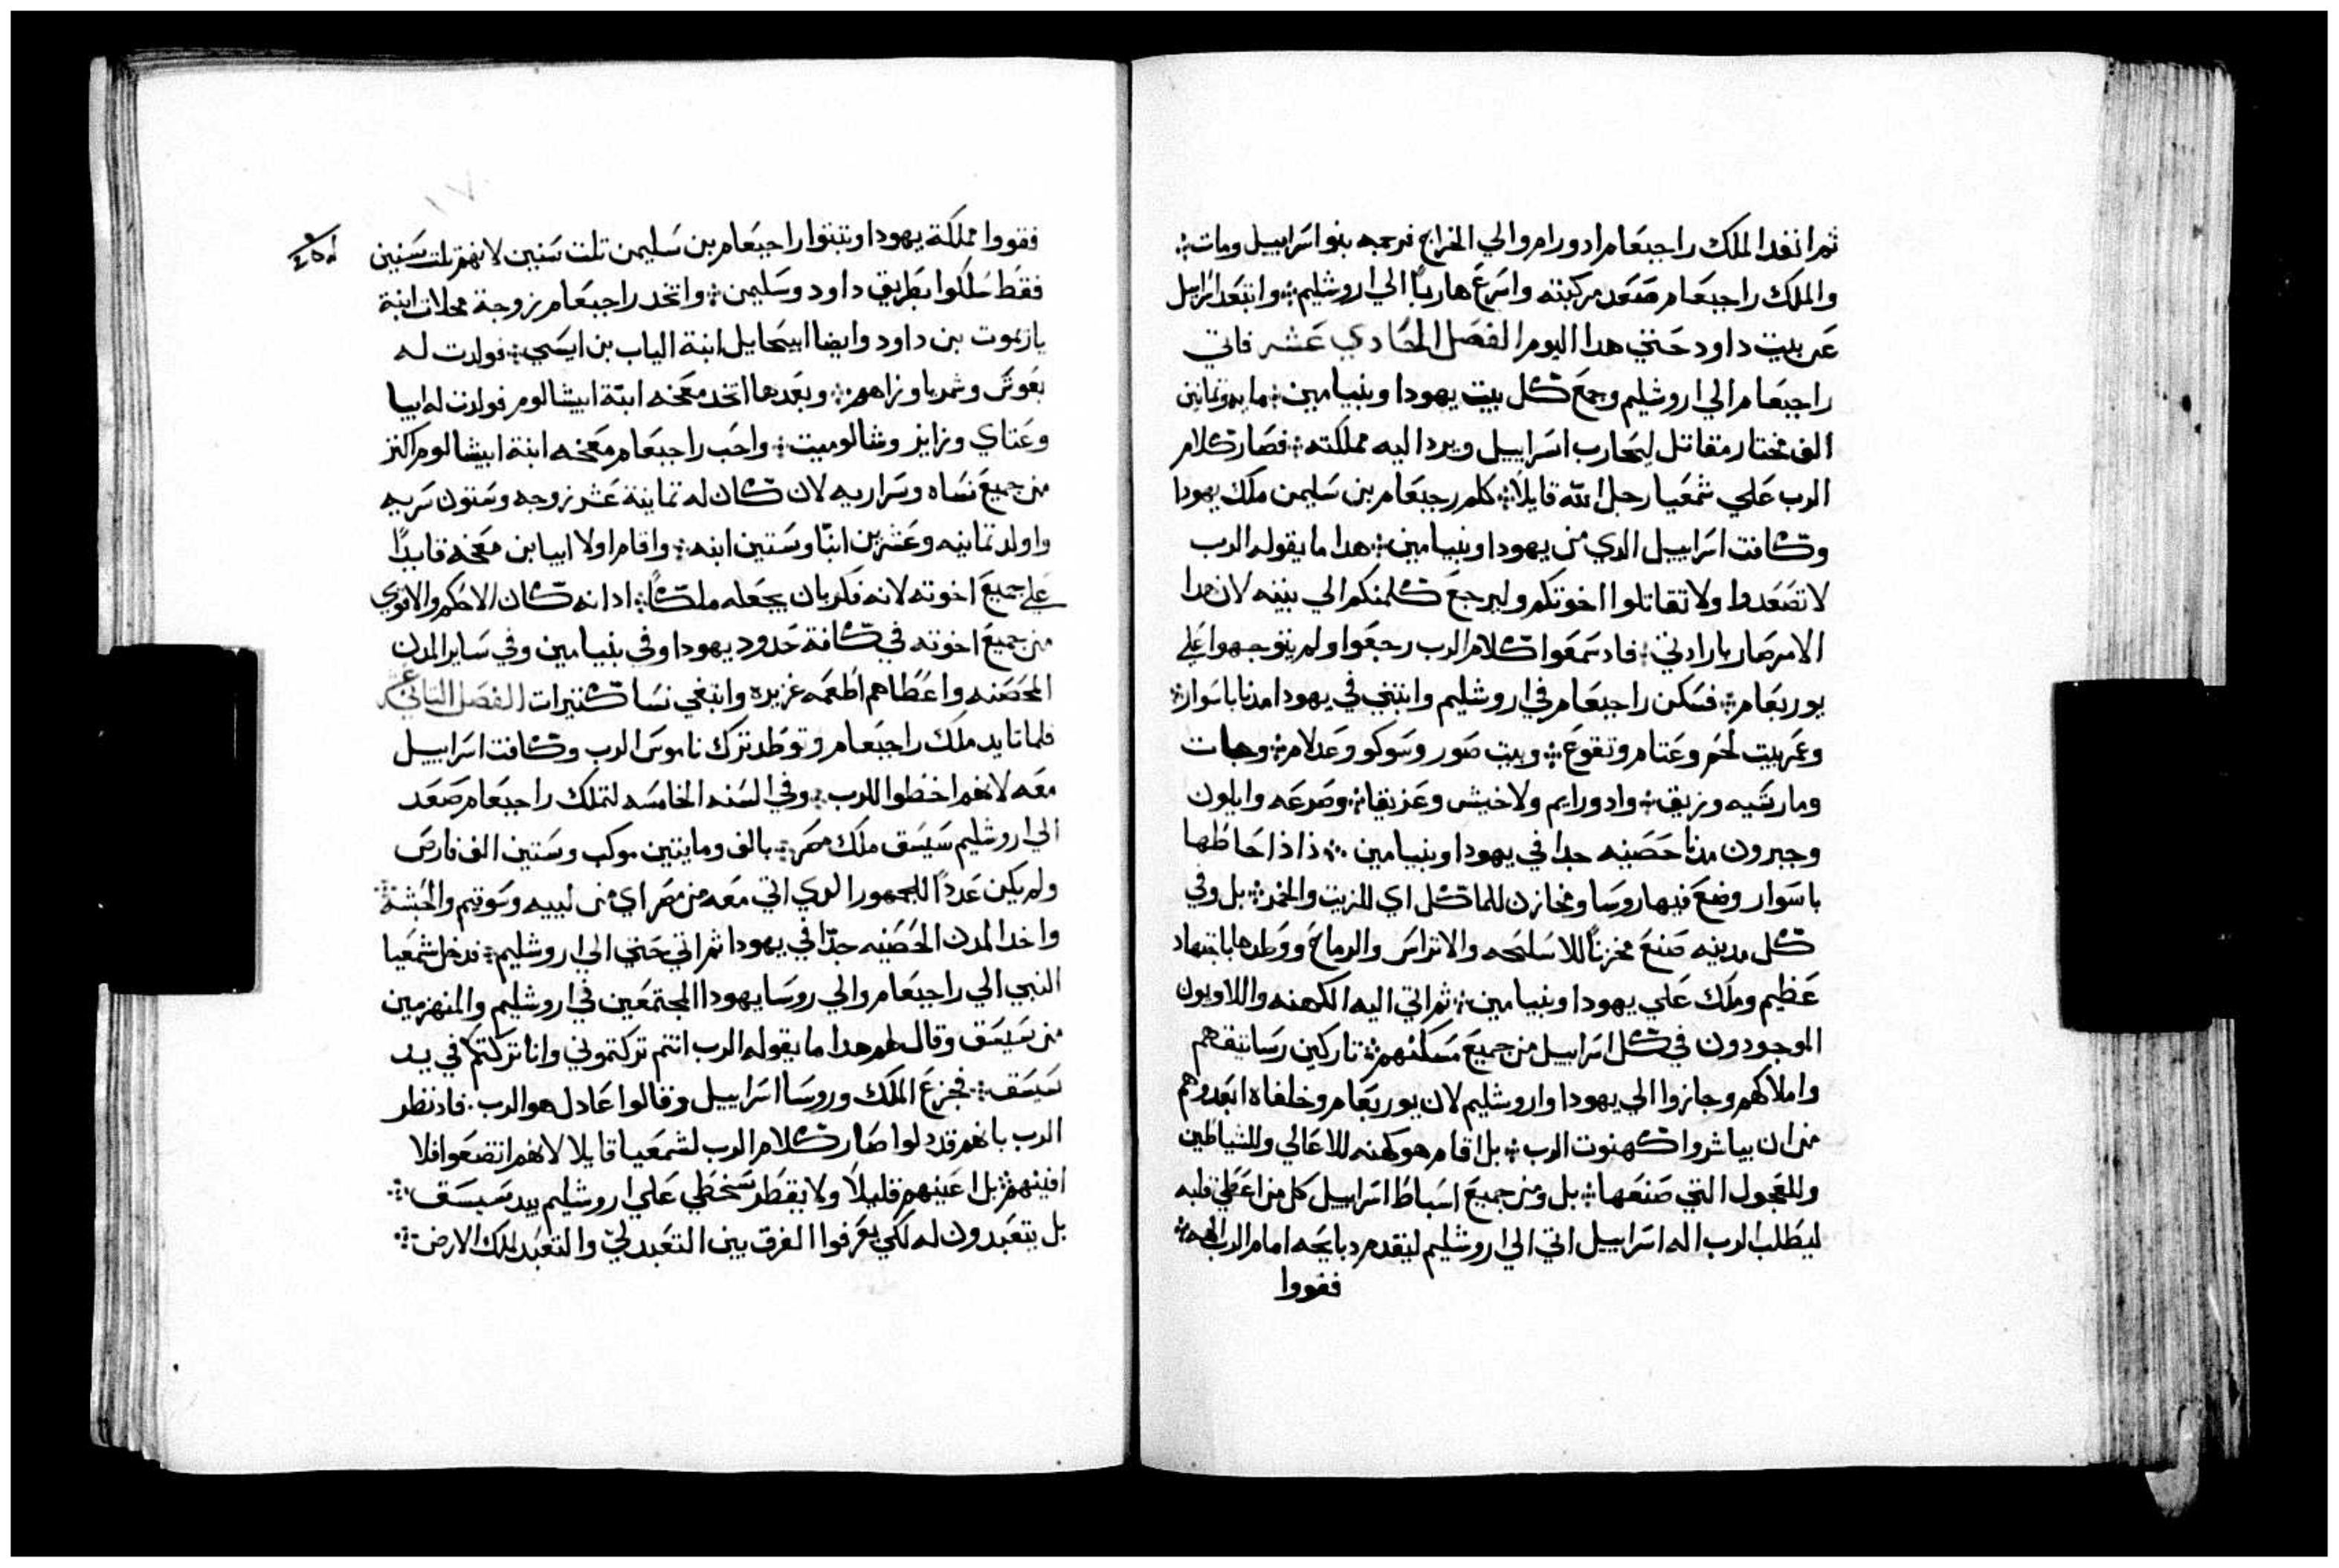 ثم انفد الملك راجبعام ادورام والي الخراج فرجمه بنو اسراييل ومات
والملك راجبعام صَعَد مركبته واسرع هاربًا الي اروشليم وابتعَد اسراييل
عن بيت داود حتي هدا اليوم الفصل الحادي عشر فاتي
راجبعام الي اروشليم وجمع كل بيت يهودا وبنيامين مايه وتمانين
الف مختار مقاتل ليحارب اسراييل ويرد اليه مملكته فصار كلام
الرب علي شمعيا رجل الله قايلاً كلم رجبعام بن سليمن ملك يهودا
وكافت اسراييل الدي من يهودا وبنيامين هدا ما يقوله الرب
لا تصعدوا ولا تقاتلوا اخوتكم وليرجع كلمنكم الي بيته لان هدا
الامر صار بارادتي فاد سمعوا كلام الرب رجعوا ولم يتوجهوا علي
يوربعام فسكن راجبعام في اروشليم وابتني في يهودا مدنا باسوار
وعمر بيت لحم وعتام وتقوع وبيت صور وسوكو وعدلام وجات
ومارشيه وزيق وادورايم ولاخيش وعزيقا وصرعه وايلون
وجبرون مدنا حصينه جدا في يهودا وبنيامين فاذا احاطها
باسوار وضع فيها روسا ومخازن للماكل اي للزيت والخمر بل وفي
كل مدينه صنع مخزنًا للاسلحه والاتراس والرماح ووطدها باجتهاد
عظيم وملك علي يهودا وبنيامين ثم اتي اليه الكهنه واللاويون
الموجودون في كل اسراييل من جميع مسكنهم تاركين رساتيقهم
واملاكهم وجازوا الي يهودا واروشليم لان يوربعام وخلفاه ابعدوهم
من ان يباشروا كهنوت الرب بل اقام هو كهنه للاعالي وللشياطين
وللعجول التي صنعها بل ومن جميع اسباط اسراييل كل من اعطي قلبه
ليطلب الرب اله اسراييل اتي الي اروشليم ليقدم دبايحه امام الرب الهه
فقووا
فقووا مملكة يهودا وتبتوا راجبعام بن سليمن تلت سنين لانهم تلت سنين
فقط سلكوا بطريق داود وسليمن واتخد راجبعام زوجة محلات ابنة
يازيموت بن داود وايضا ابيحايل ابنة الياب بن ايسي فولدت له
يعوش وشمريا وزاهم وبعدها اتخد معخه ابنة ابيشالوم فولدت له ابيا
وعتاي وزايز وشالوميت واحب راجبعام معخه ابنة ابيشالوم اكتر
من جميع نساه وسراريه لان كان له تماينة عشر زوجه وستون سريه
واولد تماينه وعشرين ابنًا وستين ابنه واقام اولا ابيا بن معخه قايدًا
علي جميع اخوته لانه فكر بان يجعله ملكًا ادانه كان الاحكم والاقوي
من جميع اخوته في كافة حدود يهودا وفي بنيامين وفي ساير المدن
المحصنه واعطاهم اطعمه غزيره وابتغي نسا كتيرات الفصل التاني عشر
فلما تايد ملك راجبعام وتوطد ترك ناموس الرب وكافت اسراييل
معه لانهم اخطوا للرب وفي السنه الخامسه لتملك راجبعام صعد
الي اروشليم سيسق ملك مصر بالف ومايتين موكب وستين الف فارس
ولم يكن عددًا للجمهور الدي اتي معه من مصر اي من ليبيه وسوقيم والحبشه
واخد المدن الحصينه جدًا في يهودا ثم اتي حتي الي اروشليم فدخل شمعيا
النبي الي راجبعام والي روسا يهودا المجتمعين في اروشليم والمنهزمين
من سيسق وقال لهم هدا ما يقوله الرب انتم تركتموني وانا تركتكم في يد
سيسق فجزع الملك وروسا اسراييل وقالوا عادل هو الرب فاد نظر
الرب بانهم قد دلوا صار كلام الرب لشمعيا قايلا لانهم اتضعوا فلا
افنيهم بل اعينهم قليلاً ولا يقطر سخطي علي اروشليم بيد سيسق
بل يتعبدون له لكي يعرفوا الفرق بين التعبد ليّ والتعبد لملك الارض